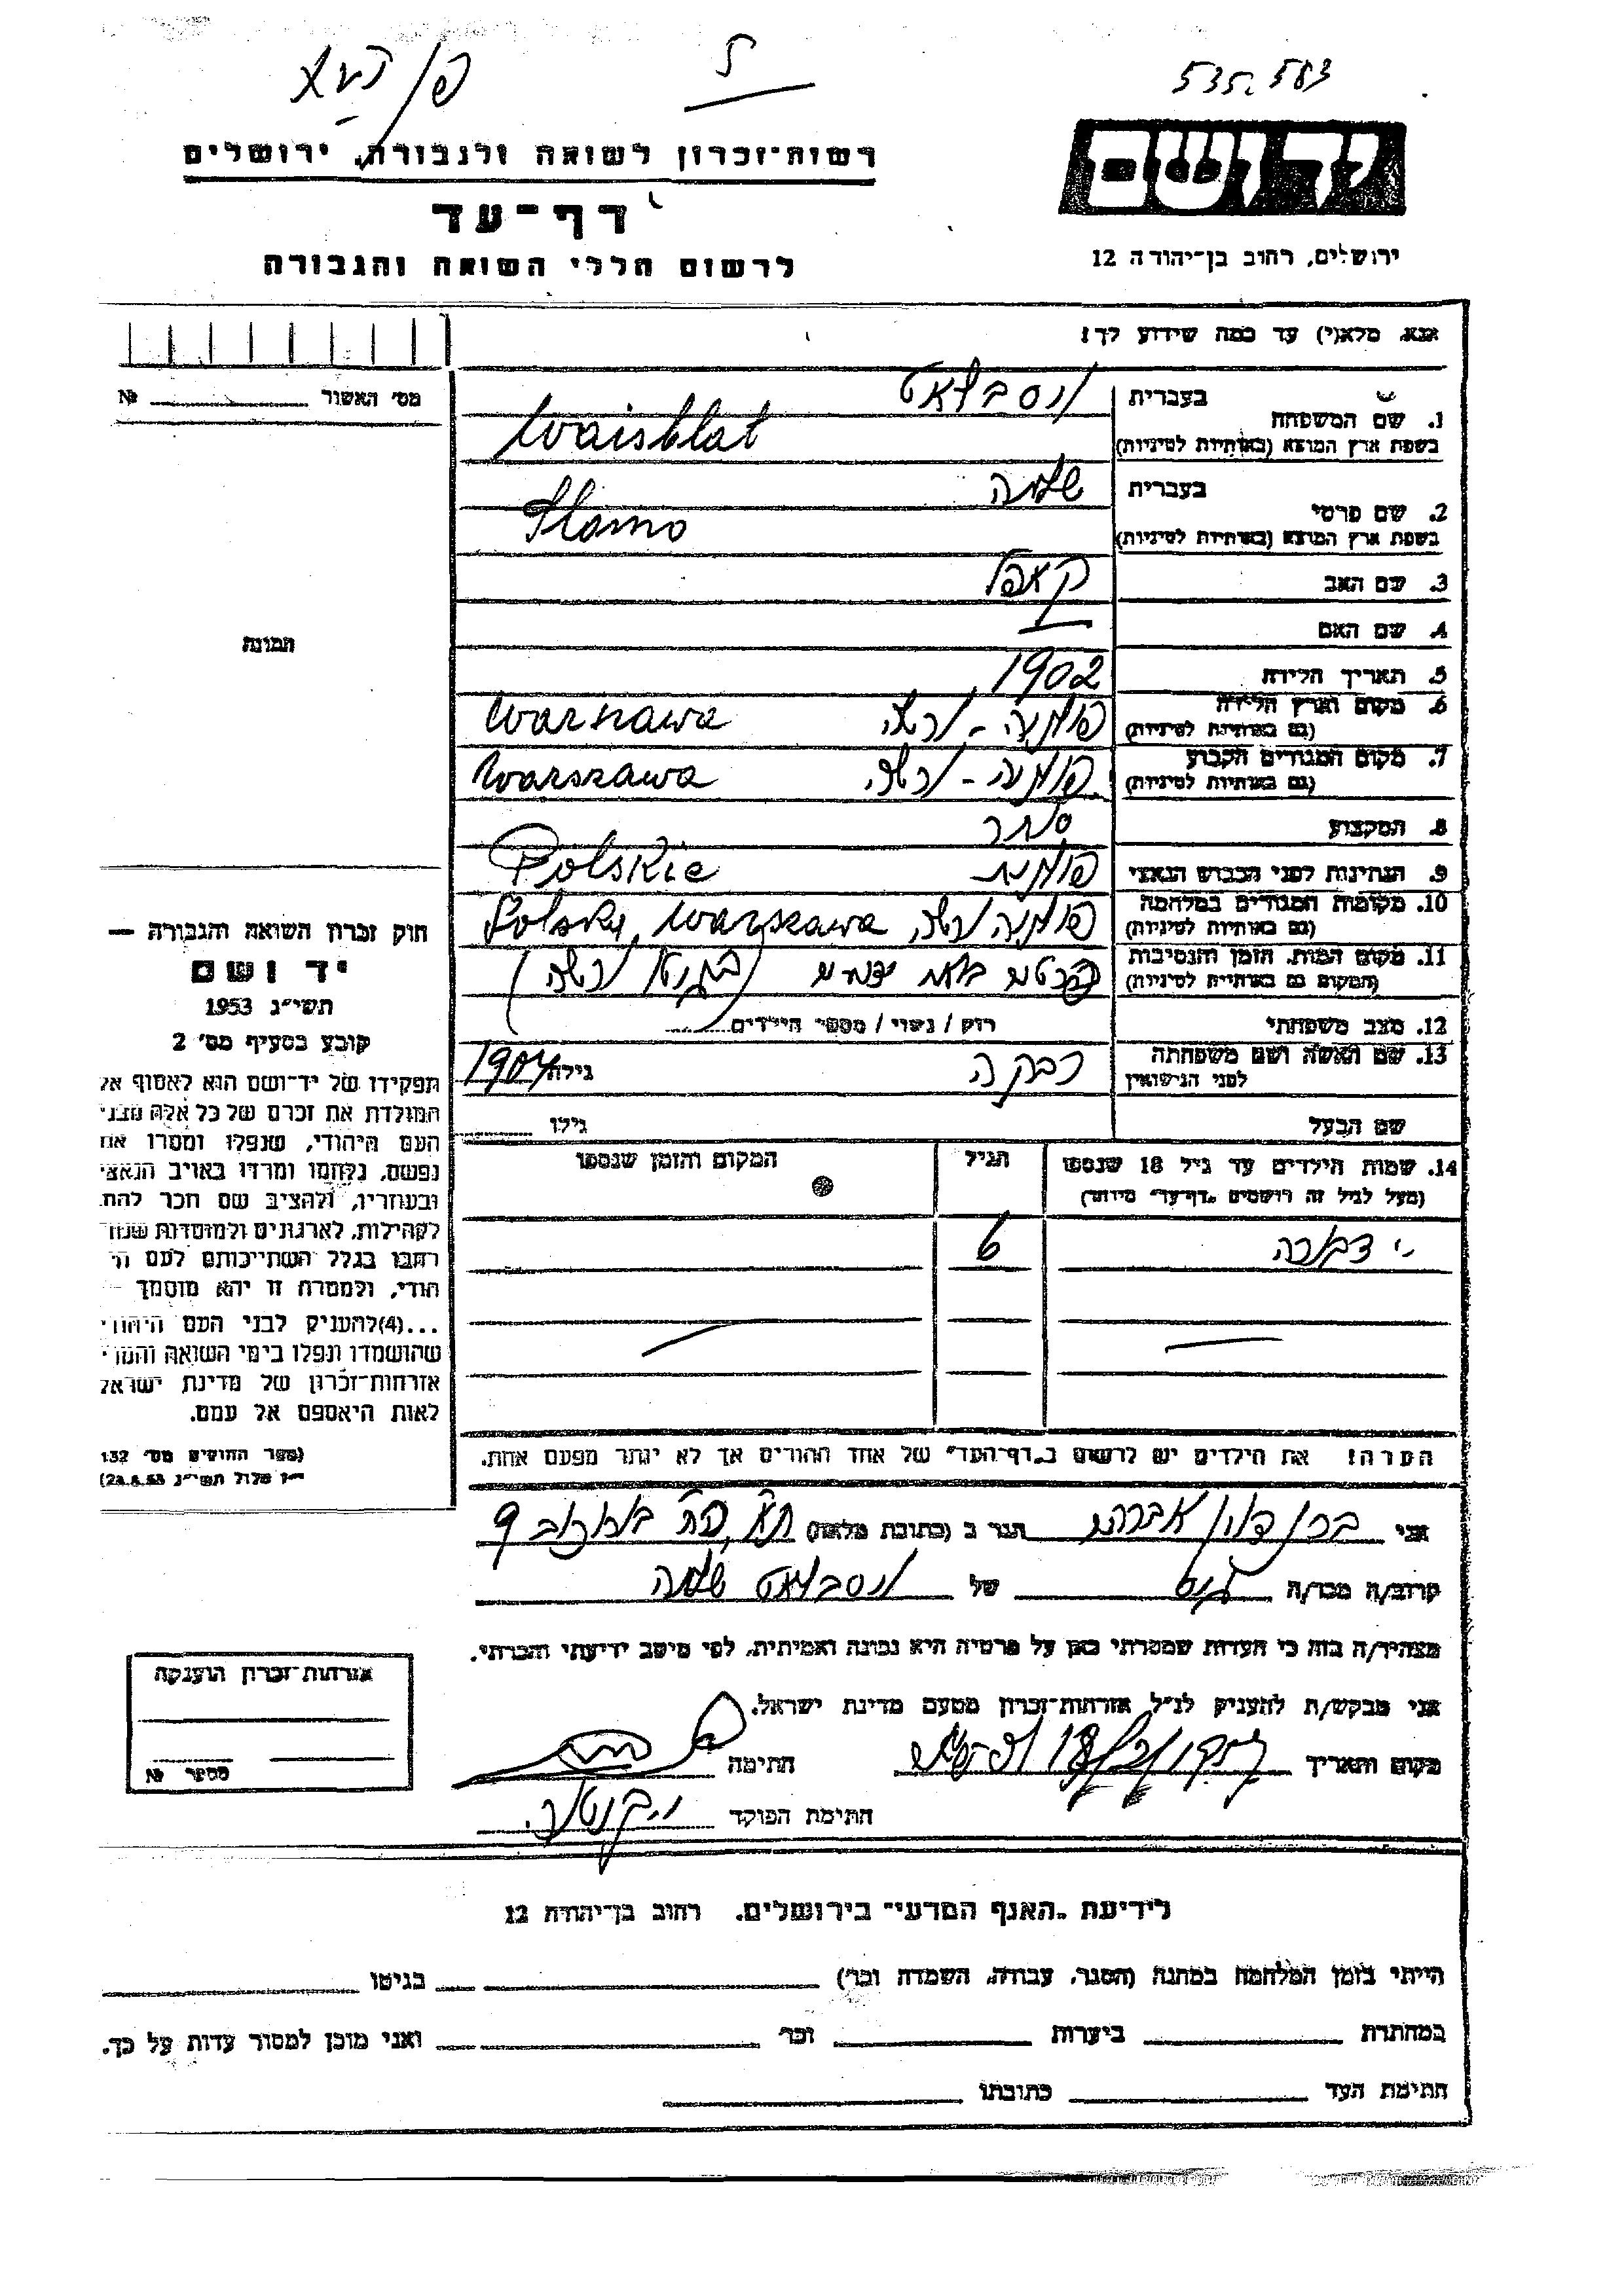 535.583
יד ושם
ירושלים, רחוב בן-יהודה 12
רשות-זכרון לשואה ולגבורה, ירושלים
דף-עד
לרשום חללי השואה והגבורה
אנא, מלא(י) עד כמה שידוע לך!
מס׳ האשור № 
1. שם המשפחה בעברית וסבלאט
בשפת ארץ המוצא (באותיות לטיניות) Waisblat
2. שם פרטי בעברית שלמה
בשפת ארץ המוצא (באותיות לטיניות) Slomo
3. שם האב קאפל
4. שם האם —
5. תאריך הלידה 1902
6. מקום וארץ הלידה (גם באותיות לטיניות) פולניה - ורשה Warszawa
7. מקום המגורים הקבוע (גם באותיות לטיניות) פולניה - ורשה Warszawa
8. המקצוע סוחר
9. הנתינות לפני הכבוש הנאצי פולנית Polskie
10. מקומות המגורים במלחמה (גם באותיות לטיניות) פולניה ורשה Polsky, Warszawa
11. מקום המות, הזמן והנסיבות (המקום גם באותיות לטיניות) פרטים בלתי ידועים (בגיטו ורשה)
12. מצב משפחתי רווק / נשוי / מספר הילדים
13. שם האשה ושם משפחתה לפני הנישואין רבקה גילה 1904
שם הבעל גילו
14. שמות הילדים עד גיל 18 שנספו (מעל לגיל זה רושמים "דף-עד" מיוחד) הגיל המקום והזמן שנספו
דבורה 6
הערה! את הילדים יש לרשום ב"דף-העד" של אחד ההורים אך לא יותר מפעם אחת.
תמונה
חוק זכרון השואה והגבורה —
יד ושם
תשי״ג 1953
קובע בסעיף מס׳ 2
תפקידו של יד-ושם הוא לאסוף אל
המולדת את זכרם של כל אלה מבני
העם היהודי, שנפלו ומסרו את
נפשם, נלחמו ומרדו באויב הנאצי
ובעוזריו, ולהציב שם וזכר להם,
לקהילות, לארגונים ולמוסדות שנחרבו
בגלל השתייכותם לעם היהודי,
ולמטרה זו יהא מוסמך —
...(4) להעניק לבני העם היהודי
שהושמדו ונפלו בימי השואה והמרי
אזרחות-זכרון של מדינת ישראל
לאות היאספם אל עמם.
(ספר החוקים מס׳ 132
אלול תשי״ג 28.8.53)
אני אברהם הגר ב (כתובת מלאה)
קרוב/ה מכר/ה גיס של וסבלאט שלמה
מצהיר/ה בזה כי העדות שמסרתי כאן על פרטיה היא נכונה ואמיתית, לפי מיטב ידיעתי והכרתי.
אני מבקש/ת להעניק לנ״ל אזרחות-זכרון מטעם מדינת ישראל.
מקום ותאריך חתימה
חתימת הפוקד
אזרחות-זכרון הוענקה
מספר №
לידיעת "האגף המדעי" בירושלים. רחוב בן-יהודה 12
הייתי בזמן המלחמה במחנה (הסגר, עבודה, השמדה וכו׳) בגיטו
במחתרת ביערות וכו׳ ואני מוכן למסור עדות על כך.
חתימת העד כתובתו